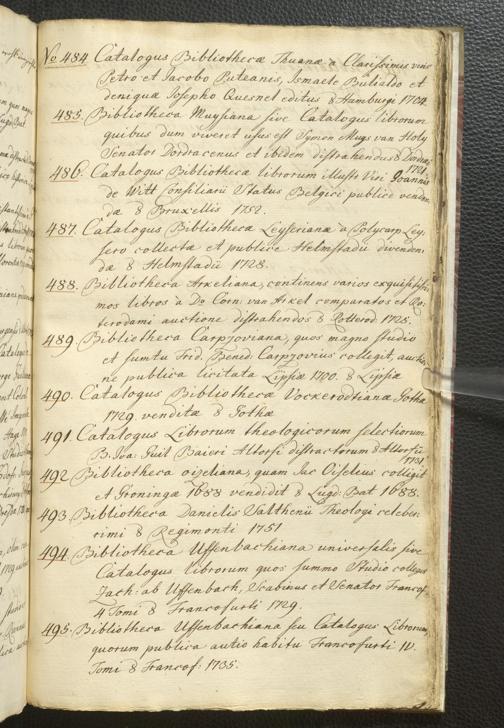 No. 484. Catalogus Bibliothecæ Thuanæ a Clarissimis viris
Petro et Jacobo Puteanis, Ismaele Bulialdo et
denique Josepho Quesnel editus 8 Hamburgi 1704.
485. Bibliotheca Muysiana sive Catalogus librorum
quibus dum viveret usus est Symon Muys van Holy
Senator Dordracenus et ibidem distrahendus 8
486. Catalogus Bibliothecæ librorum illustr. Viri Joannis
de Witt Consiliarii Status Belgici publice venden
dæ 8 Bruxellis 1752.
487. Catalogus Bibliothecæ Leyseriana a Polycarp Ley
sero collectæ et publice Helmstadii divenden
dæ 8 Helmstadii 1728.
488. Bibliotheca Arkeliana, continens varios exquisitissi
mos libros a Do. Corn. van Arkel comparatos et Ro
terodami auctione distrahendos 8 Rotterod. 1725.
489. Bibliotheca Carpzoviana, quos magno studio
et sumtu Frid. Bened. Carpzovius collegit, auctio
ne publica licitata Lipsiæ 1700. 8 Lipsiæ
490. Catalogus Bibliothecæ Vockerodtianæ Gothæ
1729. venditæ 8 Gothæ
491. Catalogus Librorum theologicorum selectiorum
B. Joa: Guil Baieri Altorfi distractorum 8 Altorfii
492 Bibliotheca oizeliana, quam Jac Oiselius collegit
et Groningæ 1688 vendidit 8 Lugd: Bat 1688.
493 Bibliotheca Danielis Salthenii Theologi celeber
rimi 8 Regimonti 1751
494. Bibliotheca Uffenbachiana universalis sive
Catalogus librorum quos summo Studio collegit
Zach: ab Uffenbach, Scabinus et Senator Francof.
4 Tomi 8 Francofurti 1729.
495. Bibliotheca Uffenbachiana seu Catalogus Librorum,
quorum publica autio habitu Francofurti IV.
Tomi 8 Francof: 1735.